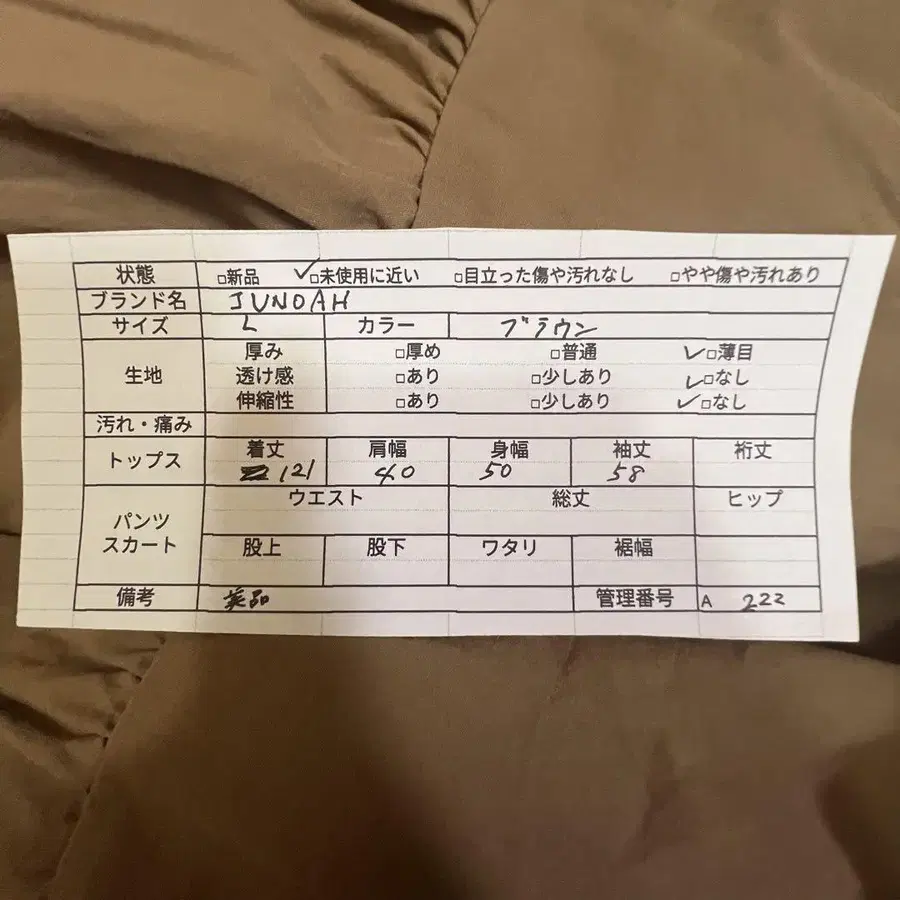 状態 □新品 ✓□未使用に近い □目立った傷や汚れなし □やや傷や汚れあり
ブランド名 JUNOAH
サイズ L カラー ブラウン
生地 厚み □厚め □普通 ✓□薄目
透け感 □あり □少しあり ✓□なし
伸縮性 □あり □少しあり ✓□なし
汚れ・痛み
トップス 着丈 肩幅 身幅 袖丈 裄丈
121 40 50 58
パンツ スカート ウエスト 総丈 ヒップ
股上 股下 ワタリ 裾幅
備考 美品 管理番号 A 222